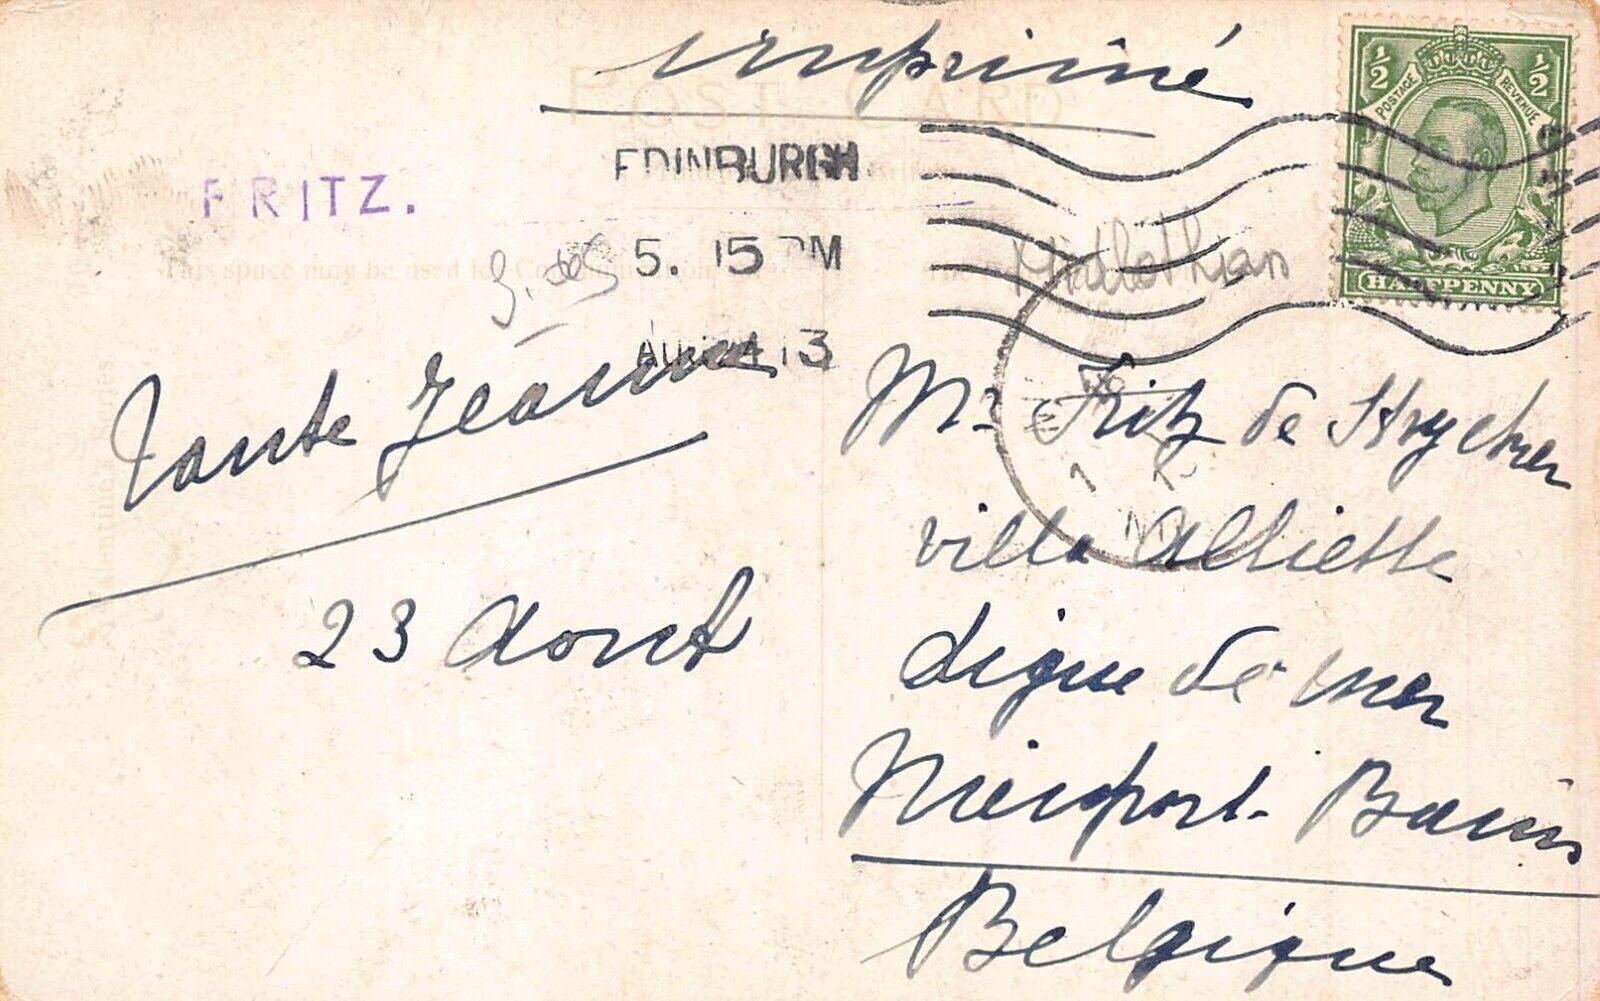 Imprimé
POST CARD
½ POSTAGE REVENUE ½
HALFPENNY
EDINBURGH
5. 15 PM
13
FRITZ.
Midlothian
This space may be used for
Tante Jeanne
23 Août
Mr Fritz de Strycker
villa Alliette
digue de mer
Nieuport-Bains
Belgique